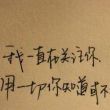 我一直在关注你
用一切你知道或不